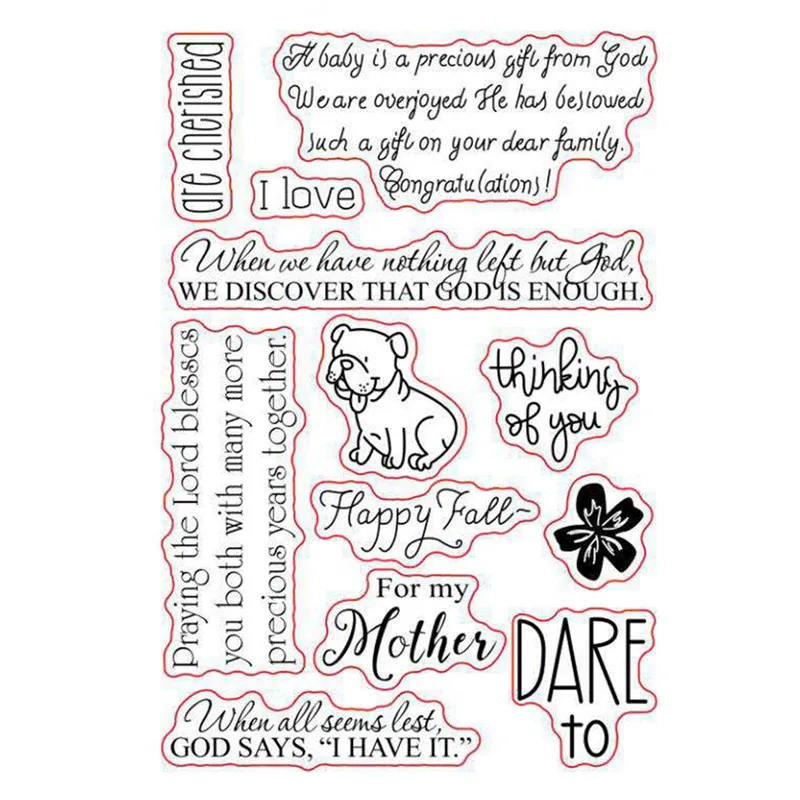 are cherished
A baby is a precious gift from God
We are overjoyed He has beslowed
such a gift on your dear family.
Congratulations!
I love
When we have nothing left but God,
WE DISCOVER THAT GOD IS ENOUGH.
Praying the Lord blesscs
you both with many more
precious years together.
thinking
of you
Happy Fall~
For my
Mother
DARE
to
When all seems lest,
GOD SAYS, “I HAVE IT.”